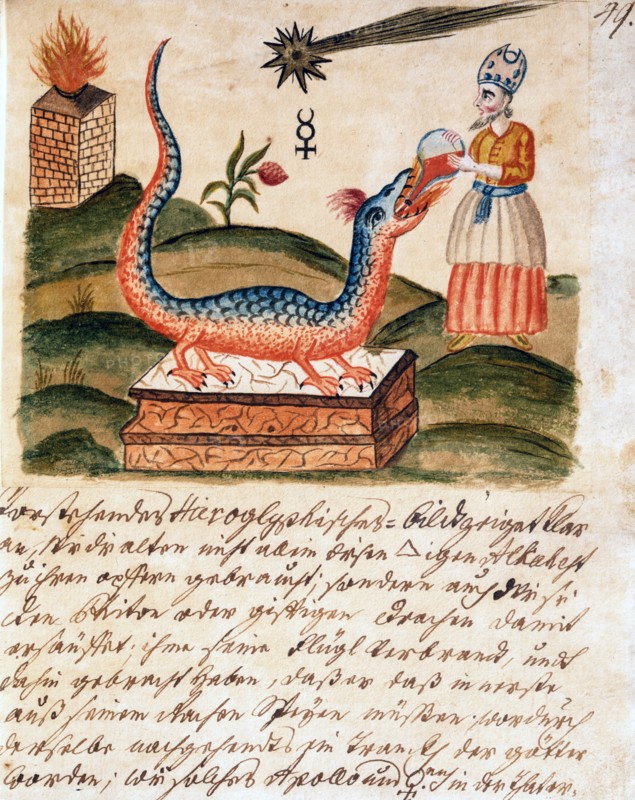 49.
Vorstehendes Hieroglyphisches-bild zeiget klar
an, die alten nicht allein diesen △ igen Alkahest
zu ihren opffern gebraucht; sondern auch wie sie
den Phiton oder gifftigen Drachen damit
ersäuffet, ihme seine Flügl verbrand, und
dahin gebracht haben, daß er daß innerste
auß seinem Rachen Speyen müssen, wordurch
derselbe nachgehendts ein Tranck der götter
worden; wie solches Apollo und in der